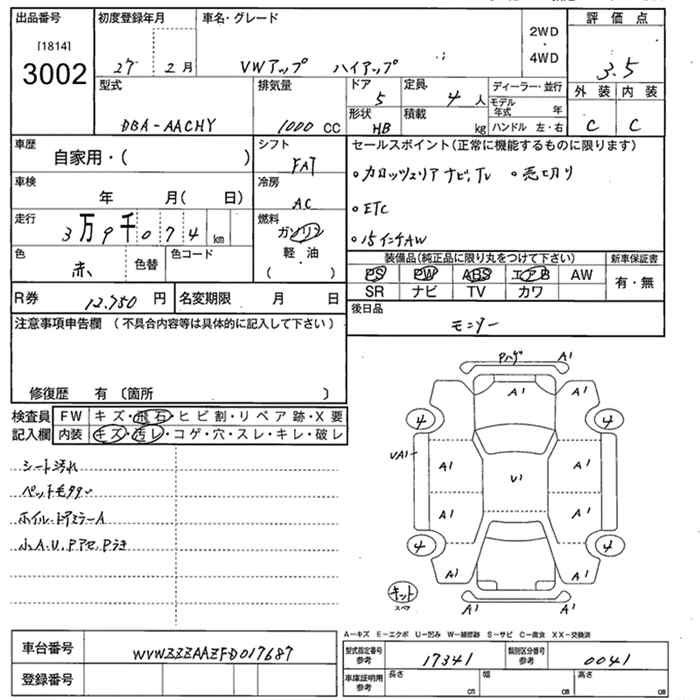 出品番号
[1814]
3002
初度登録年月
27 2月
車名・グレード
VWアップ ハイアップ
2WD
4WD
評価点
3.5
外装 内装
C C
型式
DBA-AACHY
排気量
1000 CC
ドア
5
形状
HB
定員
4人
積載
kg
ディーラー・並行
モデル年式 年
ハンドル 左・右
車歴
自家用・( )
シフト
FAT
セールスポイント(正常に機能するものに限ります)
。カロッツェリア ナビ,TV 。売切り
。ETC
。15インチAW
車検
年 月( 日)
冷房
AC
走行
3万9千074km
燃料
ガソリン
軽・油
( )
色
赤
色替
色コード
装備品(純正品に限り丸をつけて下さい)
PS PW ABS エアB AW
SR ナビ TV カワ
新車保証書
有・無
R券
12,750 円
名変期限 月 日
後日品
モニター
注意事項申告欄 (不具合内容等は具体的に記入して下さい)
修復歴 有 (箇所 )
検査員
記入欄
FW キズ・飛石・ヒビ割・リペア跡・X要
内装 キズ・汚レ・コゲ・穴・スレ・キレ・破レ
シート汚れ
ペット毛タタン
ホイル・ドアミラーA
小A.U,Pアセ,Pうき
Pハゲ A1
A1 A1
4 4
UA1
A1 U1 A1
A1 A1
4 4
A1 A1
キット
スペア
A1 A1
A-キズ E-エクボ U-凹み W-補修跡 S-サビ C-腐食 XX-交換済
車台番号
WVWZZZAAZFD017687
型式指定番号
参考
17341
類別区分番号
参考
0041
登録番号
車庫証明用
参考
長さ cm
幅 cm
高さ cm